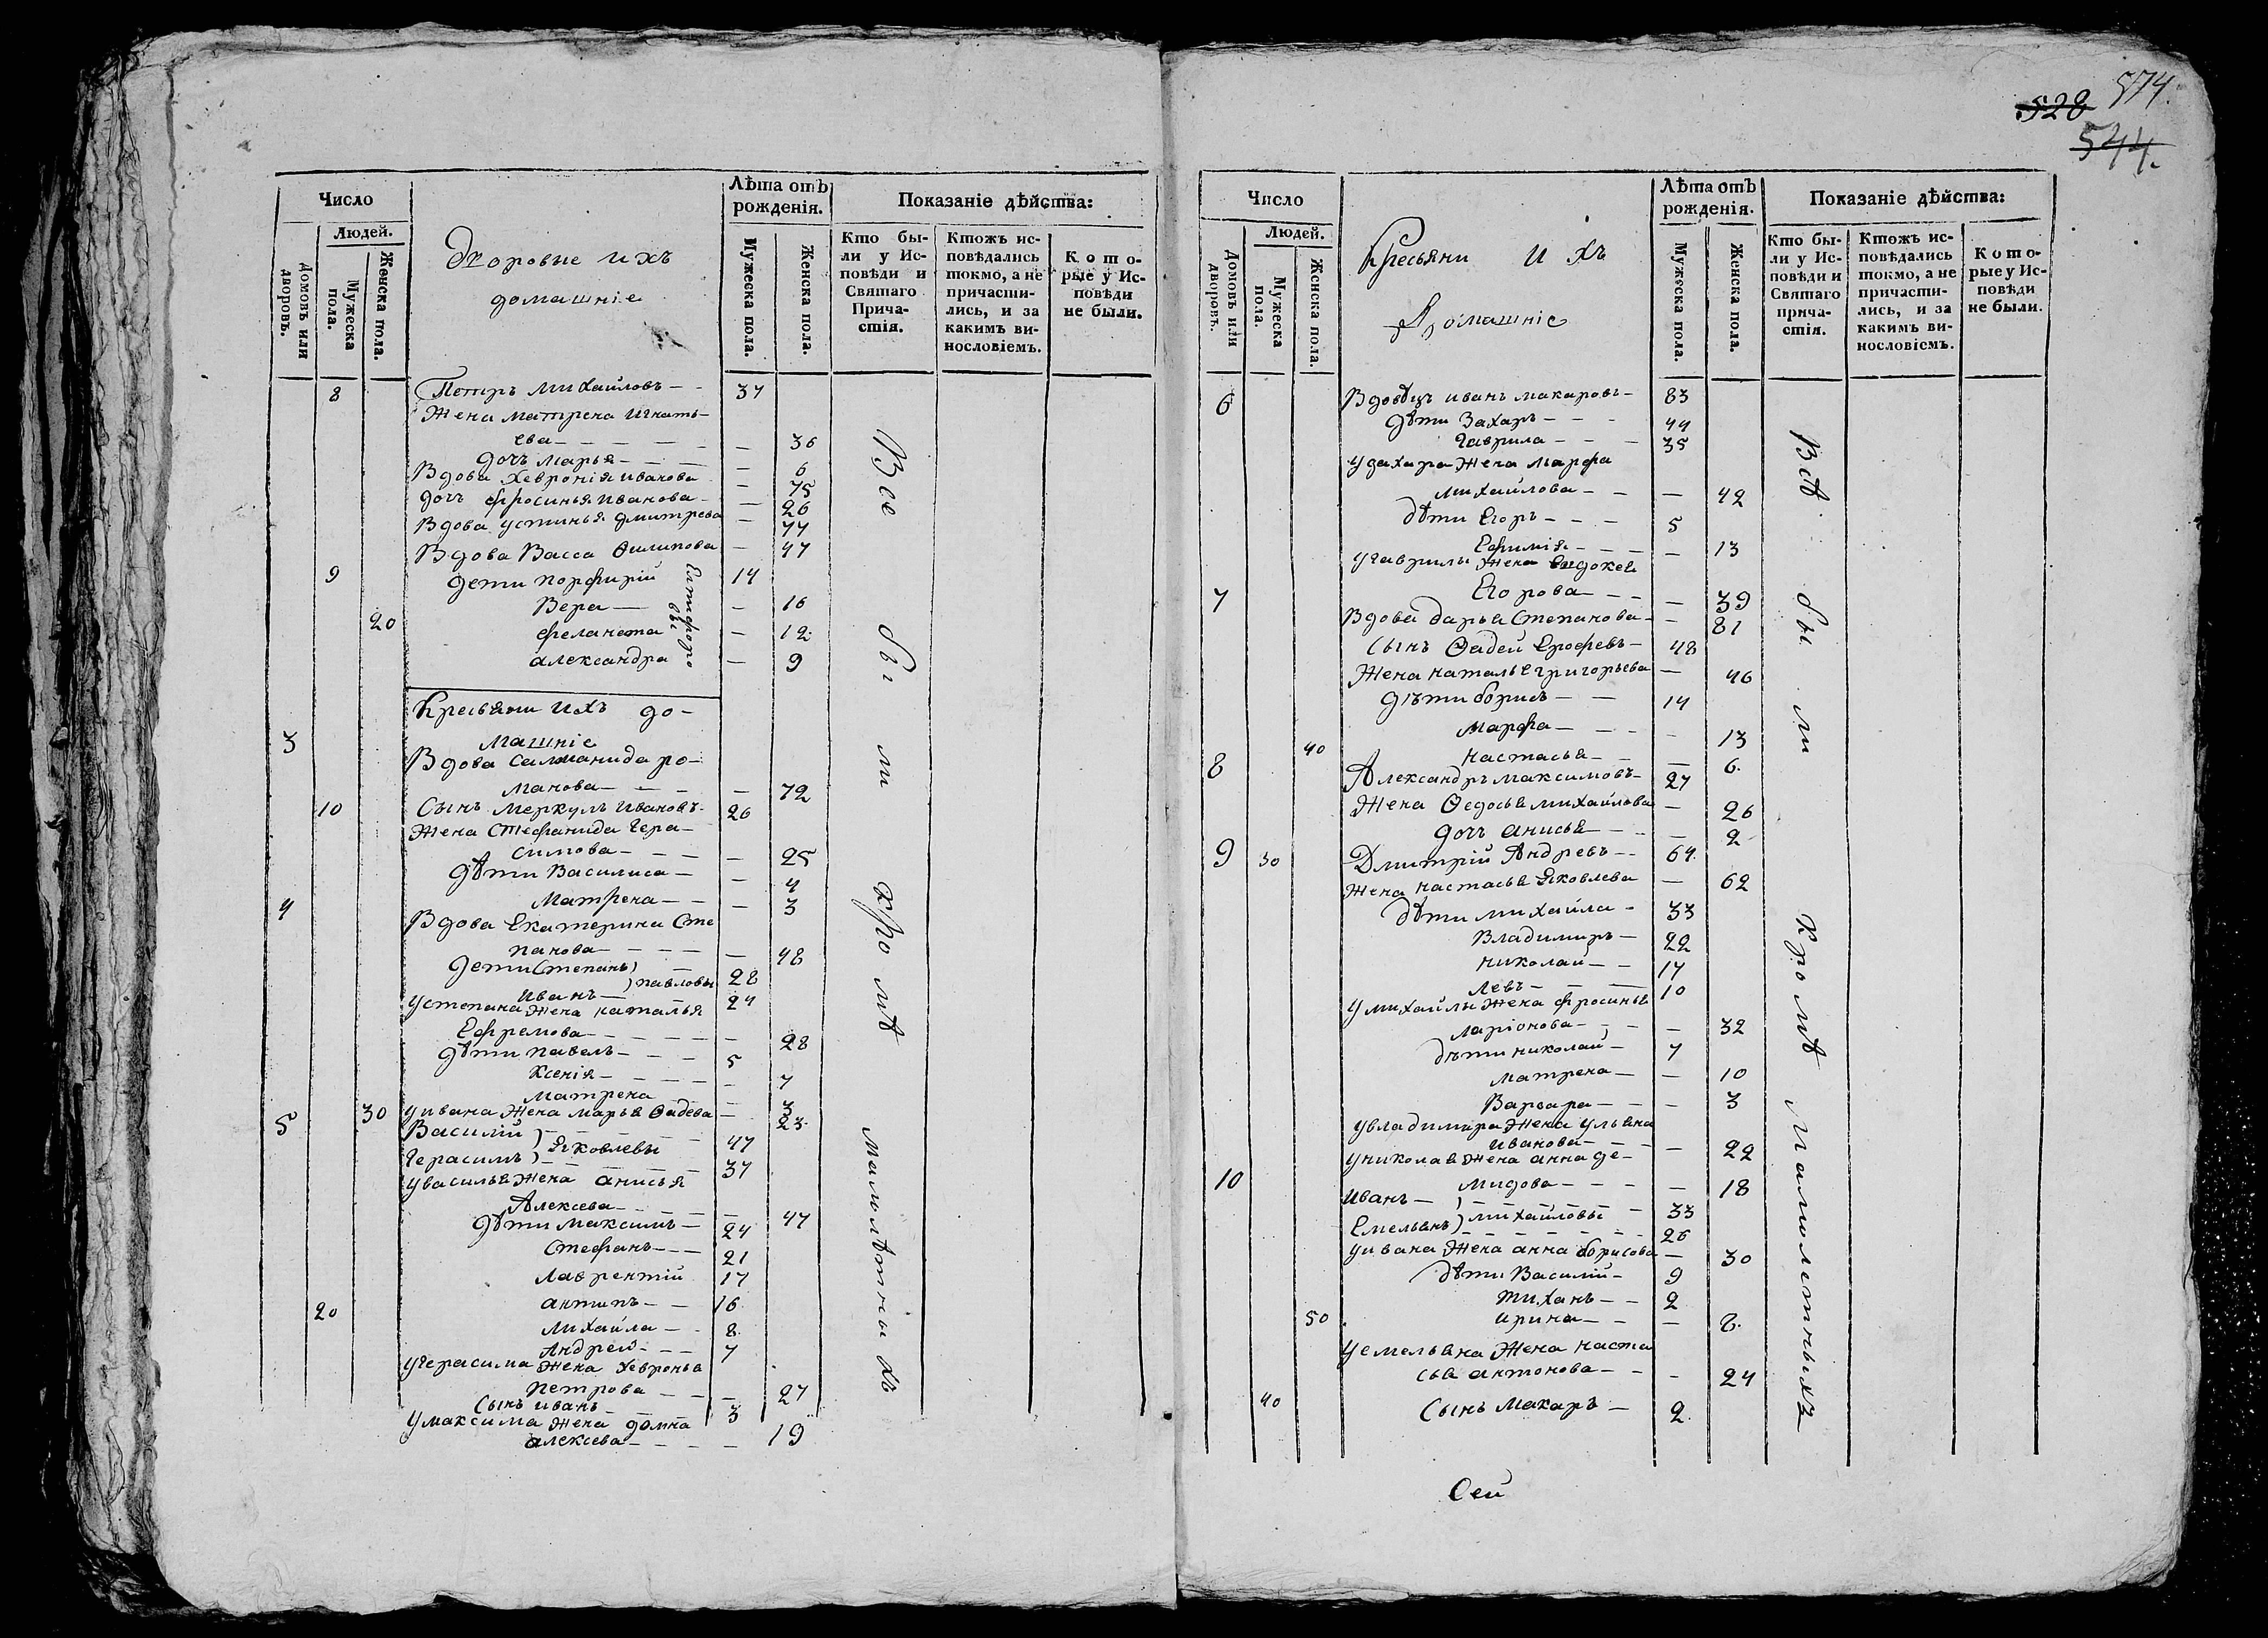 528 574.
544.
Число
Людей.
Домовъ или дворовъ.
Мужеска пола.
Женска пола.
Дворовые ихъ
домашніе
Лѣта отъ рожденія.
Мужеска пола.
Женска пола.
Показаніе дѣйства:
Кто бы-
ли у Ис-
повѣди и
Святаго
Прича-
стія.
Ктожъ ис-
повѣдались
токмо, а не
причасти-
лись, и за
какимъ ви-
нословіемъ.
Кото-
рые у Ис-
повѣди
не были.
8 Петръ Михайловъ — - 37
Жена Матрена Игнать-
ева — — — 36
дочь Марья — — 6
Вдова Хевронія Иванова — 75
дочь Фросинья Иванова — 26
Вдова Устинья Дмитрева — 77
Вдова Васса Филипова — 47
9 дети Порфирій 14
Вера — — 16
20 Феланета — 12
Александра — 9
Елпифоро
вы
Кресьяни ихъ до-
машніе
3 Вдова Саломанида Ро-
манова — — 72
10 Сынъ Меркулъ Ивановъ 26
Жена Стефанида Гера-
симова — — 25
дѣти Василиса — — 4
Матрена — — 3
4 Вдова Екатерина Сте
панова — — 48
дети Степанъ) 28
Иванъ —) Павловы 24
У степана жена Наталья
Ефремова — — 28
дѣти Павелъ — — 5
Ксенія — — 7
Матрена — 3
30 У ивана жена Марья Фадева — 23
5 Василій) 47
Герасимъ) Яковлевы 37
У василья жена Анисья
Алексева — — 47
дѣти Максимъ — 24
Стефанъ — — 21
Лаврентій 17
20 Антипъ — — 16
Михайла — - 8
Андрей — — 7
У герасима жена Хевронья
Петрова — — 27
Сынъ Иванъ 3
У максима жена Домна
Алексева — — 19
Все были кромѣ малолѣтнихъ
Число
Людей.
Домовъ или дворовъ.
Мужеска пола.
Женска пола.
Кресьяни ихъ
Домашніе
Лѣта отъ рожденія.
Мужеска пола.
Женска пола.
Показаніе дѣйства:
Кто бы-
ли у Ис-
повѣди и
Святаго
прича-
стія.
Ктожъ ис-
повѣдались
токмо, а не
причасти-
лись, и за
какимъ ви-
нословіемъ.
Кото-
рые у Ис-
повѣди
не были.
6 Вдовецъ Иванъ Макаровъ — 83
дѣти Захаръ — — 44
Гаврила — — 35
У захара жена Марфа
Михайлова — — 42
дѣти Егоръ — — 5
Ефимія — — 13
У гаврилы жена Евдокея
Егорова — — 39
7 Вдова Дарья Степанова — 81
Сынъ Фадей Ерофевъ — 48
Жена Наталья Григорьева — 46
дѣти Борисъ — — 14
Марфа — — 13
40 Настасья — — 6
8 Александръ Максимовъ — 27
Жена Федосья Михайлова — 26
дочь Анисья — — 2
9 30 Дмитрій Андревъ — 64
Жена Настасья Яковлева — 62
дѣти Михайла — 33
Владимиръ — 22
Николай — — 17
Левъ — — 10
У михайлы жена Фросинья
Ларіонова — — 32
дѣти Николай — 7
Матрена — — 10
Варвара — — 3
У владимира жена Ульяна
Иванова — — 22
У николая жена Анна Де-
мидова — — 18
10 Иванъ —) 33
Емельянъ) Михайловы 26
У ивана жена Анна Борисова — 30
дѣти Василій — 9
Тиханъ — — 2
50 Ирина — — 8
У емельяна жена Наста
сья Антонова — — 24
40 Сынъ Макаръ — 2
Всѣ были кромѣ малолетныхъ
Сей